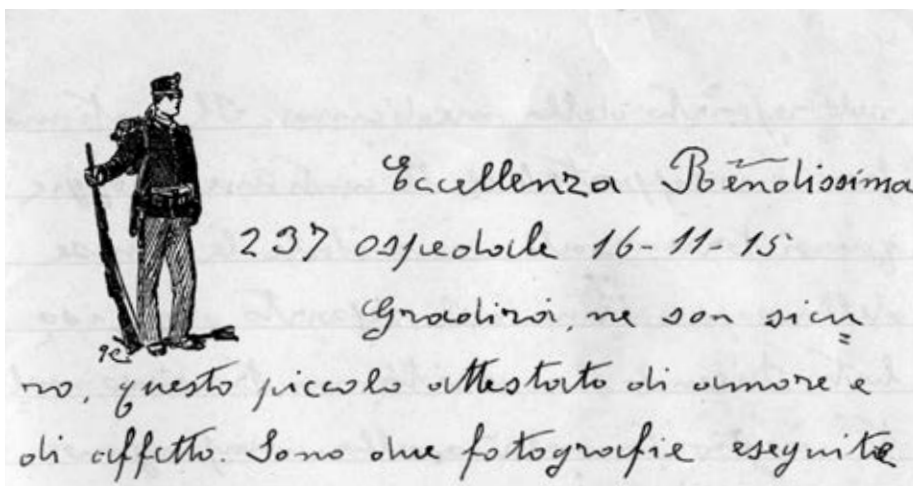 Eccellenza Rēndissima
237 ospedale 16-11-15
Gradirà, ne son sicu=
ro, questo piccolo attestato di amore e
di affetto. Sono due fotografie eseguite